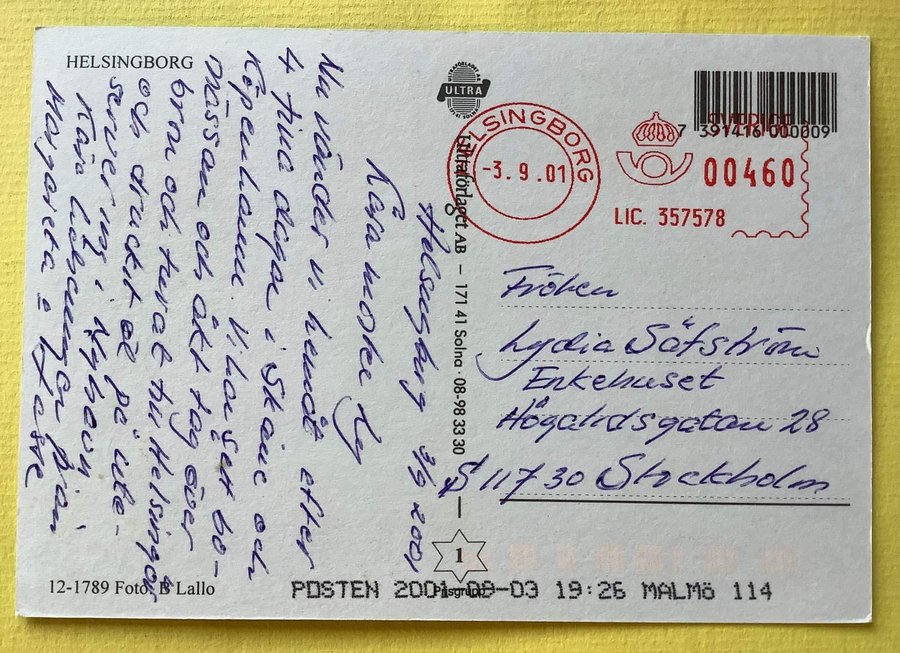 HELSINGBORG
Helsingborg 3/9 2001
Kära moster Ly
Nu vänder vi hemåt efter
4 fina dagar i Skåne och
Köpenhamn. Vi har sett bo-
mässan och åkt tåg över
bron och turat till Helsingör
och druckit öl på ute-
servering i Nyhavn
Kära hälsningar från
Margareta & Lasse
12-1789 Foto: B Lallo
ULTRA
Ultraförlaget AB – 171 41 Solna · 08-98 33 30
1
Prisgrupp
HELSINGBORG
-3. 9 .01
SVERIGE
00460
LIC. 357578
7 391416 000009
Fröken
Lydia Säfström
Enkehuset
Högalidsgatan 28
S 117 30 Stockholm
POSTEN 2001-09-03 19:26 MALMÖ 114